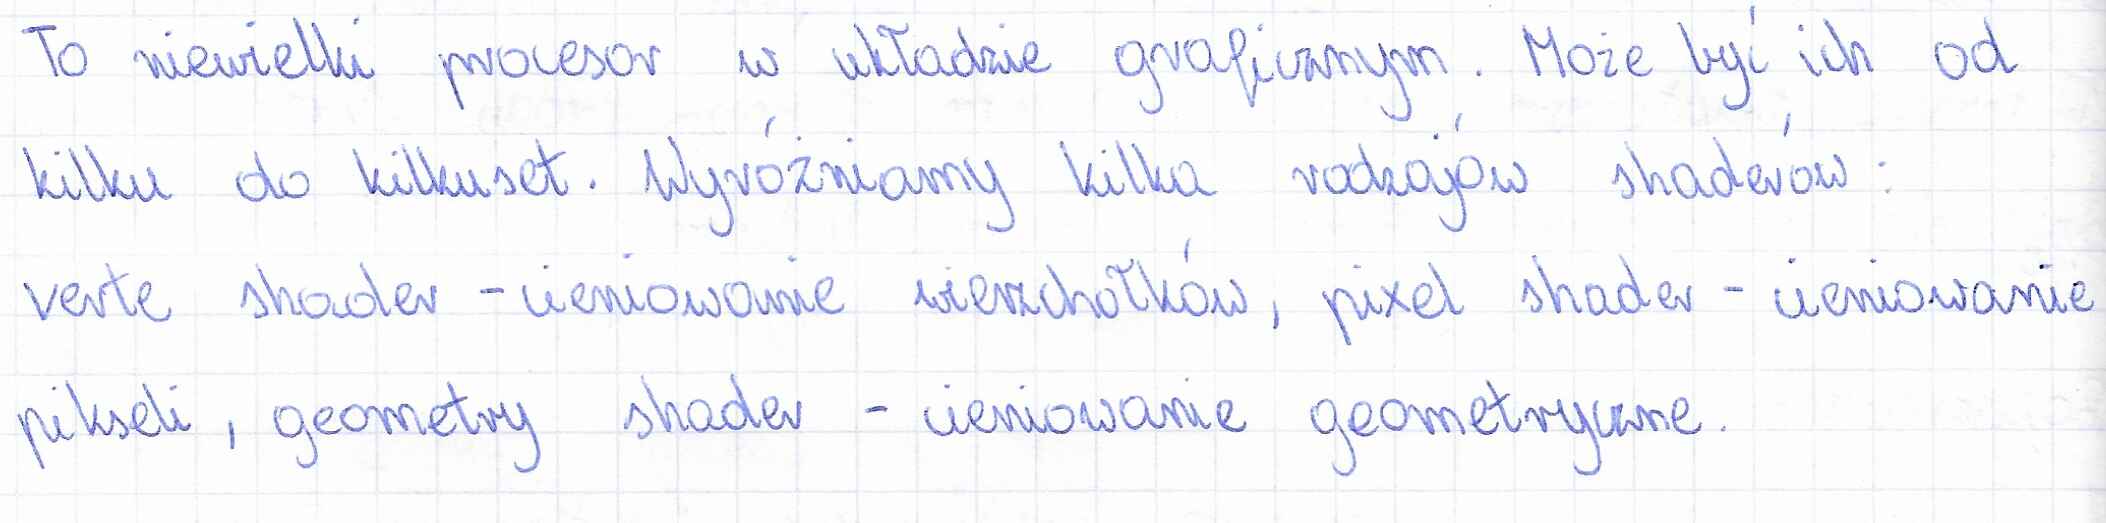 To niewielki procesor w układzie graficznym. Może być ich od
kilku do kilkuset. Wyróżniamy kilka rodzajów shaderów:
verte shader - cieniowanie wierzchołków, pixel shader - cieniowanie
pikseli, geometry shader - cieniowanie geometryczne.